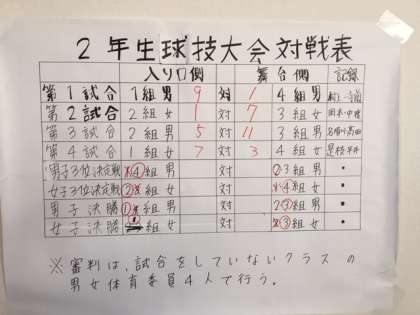 2年生球技大会対戦表
入り口側 舞台側 記録
第1試合 1組男 9 対 1 4組男
第2試合 2組女 1 対 7 3組女
第3試合 2組男 5 対 11 3組男
第4試合 1組女 7 対 3 4組女
男子3位決定戦 1・4組男 対 2・3組男
女子3位決定戦 2・3組女 対 1・4組女
男子決勝 1・4組男 対 2・3組男
女子決勝 組女 対 2・3組女
※審判は、試合をしていないクラスの
男女体育委員4人で行う。